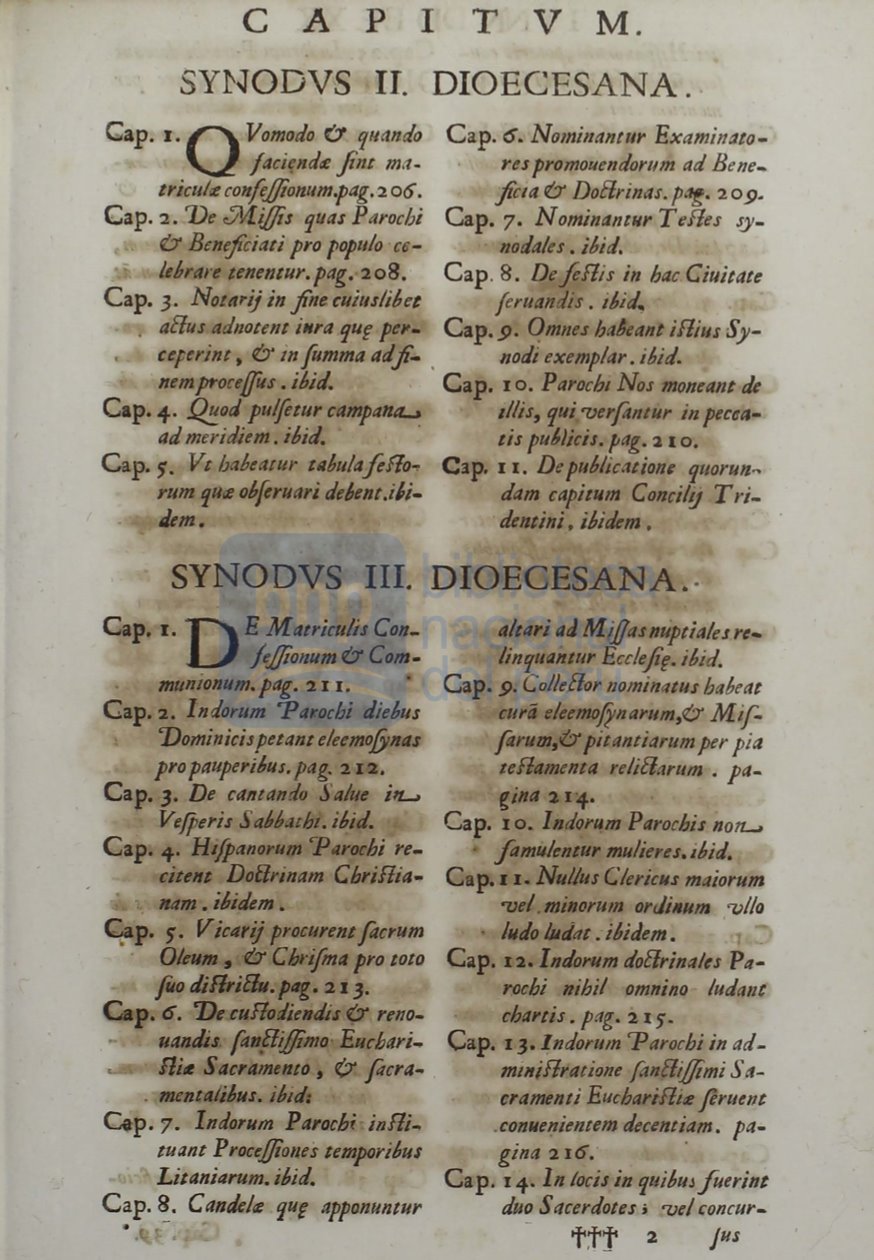 C A P I T V M.
SYNODVS II. DIOECESANA.
Cap. 1. QVomodo & quando
faciendæ ſint ma-
triculæ confeſſionum.pag.206.
Cap. 2. De Miſſis quas Parochi
& Beneficiati pro populo ce-
lebrare tenentur.pag. 208.
Cap. 3. Notarij in fine cuiuslibet
actus adnotent iura quę per-
ceperint, & in ſumma ad fi-
nem proceſſus. ibid.
Cap. 4. Quod pulſetur campana
ad meridiem. ibid.
Cap. 5. Vt habeatur tabula feſto-
rum quæ obſeruari debent.ibi-
dem.
Cap. 6. Nominantur Examinato-
res promouendorum ad Bene-
ficia & Doctrinas. pag. 209.
Cap. 7. Nominantur Teſtes sy-
nodales. ibid.
Cap. 8. De feſtis in hac Ciuitate
ſeruandis. ibid.
Cap. 9. Omnes habeant iſtius Sy-
nodi exemplar. ibid.
Cap. 10. Parochi Nos moneant de
illis, qui verſantur in pecca-
tis publicis. pag. 210.
Cap. 11. De publicatione quorun-
dam capitum Concilij Tri-
dentini, ibidem.
SYNODVS III. DIOECESANA.
Cap. 1. DE Matriculis Con-
feſſionum & Com-
munionum. pag. 211.
Cap. 2. Indorum Parochi diebus
Dominicis petant eleemoſynas
pro pauperibus. pag. 212.
Cap. 3. De cantando Salue in
Veſperis Sabbathi. ibid.
Cap. 4. Hiſpanorum Parochi re-
citent Doctrinam Chriſtia-
nam. ibidem.
Cap. 5. Vicarij procurent ſacrum
Oleum, & Chriſma pro toto
ſuo diſtrictu. pag. 213.
Cap. 6. De cuſtodiendis & reno-
uandis ſanctiſſimo Euchari-
ſtiæ Sacramento, & ſacra-
mentalibus. ibid:
Cap. 7. Indorum Parochi inſti-
tuant Proceſſiones temporibus
Litaniarum. ibid.
Cap. 8. Candelæ quę apponuntur
altari ad Miſſas nuptiales re-
linquantur Eccleſię. ibid.
Cap. 9. Collector nominatus habeat
curā eleemoſynarum,& Miſ-
ſarum,& pitantiarum per pia
teſtamenta relictarum. pa-
gina 214.
Cap. 10. Indorum Parochis non
famulentur mulieres. ibid.
Cap. 11. Nullus Clericus maiorum
vel minorum ordinum vllo
ludo ludat. ibidem.
Cap. 12. Indorum doctrinales Pa-
rochi nihil omnino ludant
chartis. pag. 215.
Cap. 13. Indorum Parochi in ad-
miniſtratione ſanctiſſimi Sa-
cramenti Euchariſtiæ ſeruent
conuenientem decentiam. pa-
gina 216.
Cap. 14. In locis in quibus fuerint
duo Sacerdotes; vel concur-
††† 2 ſus